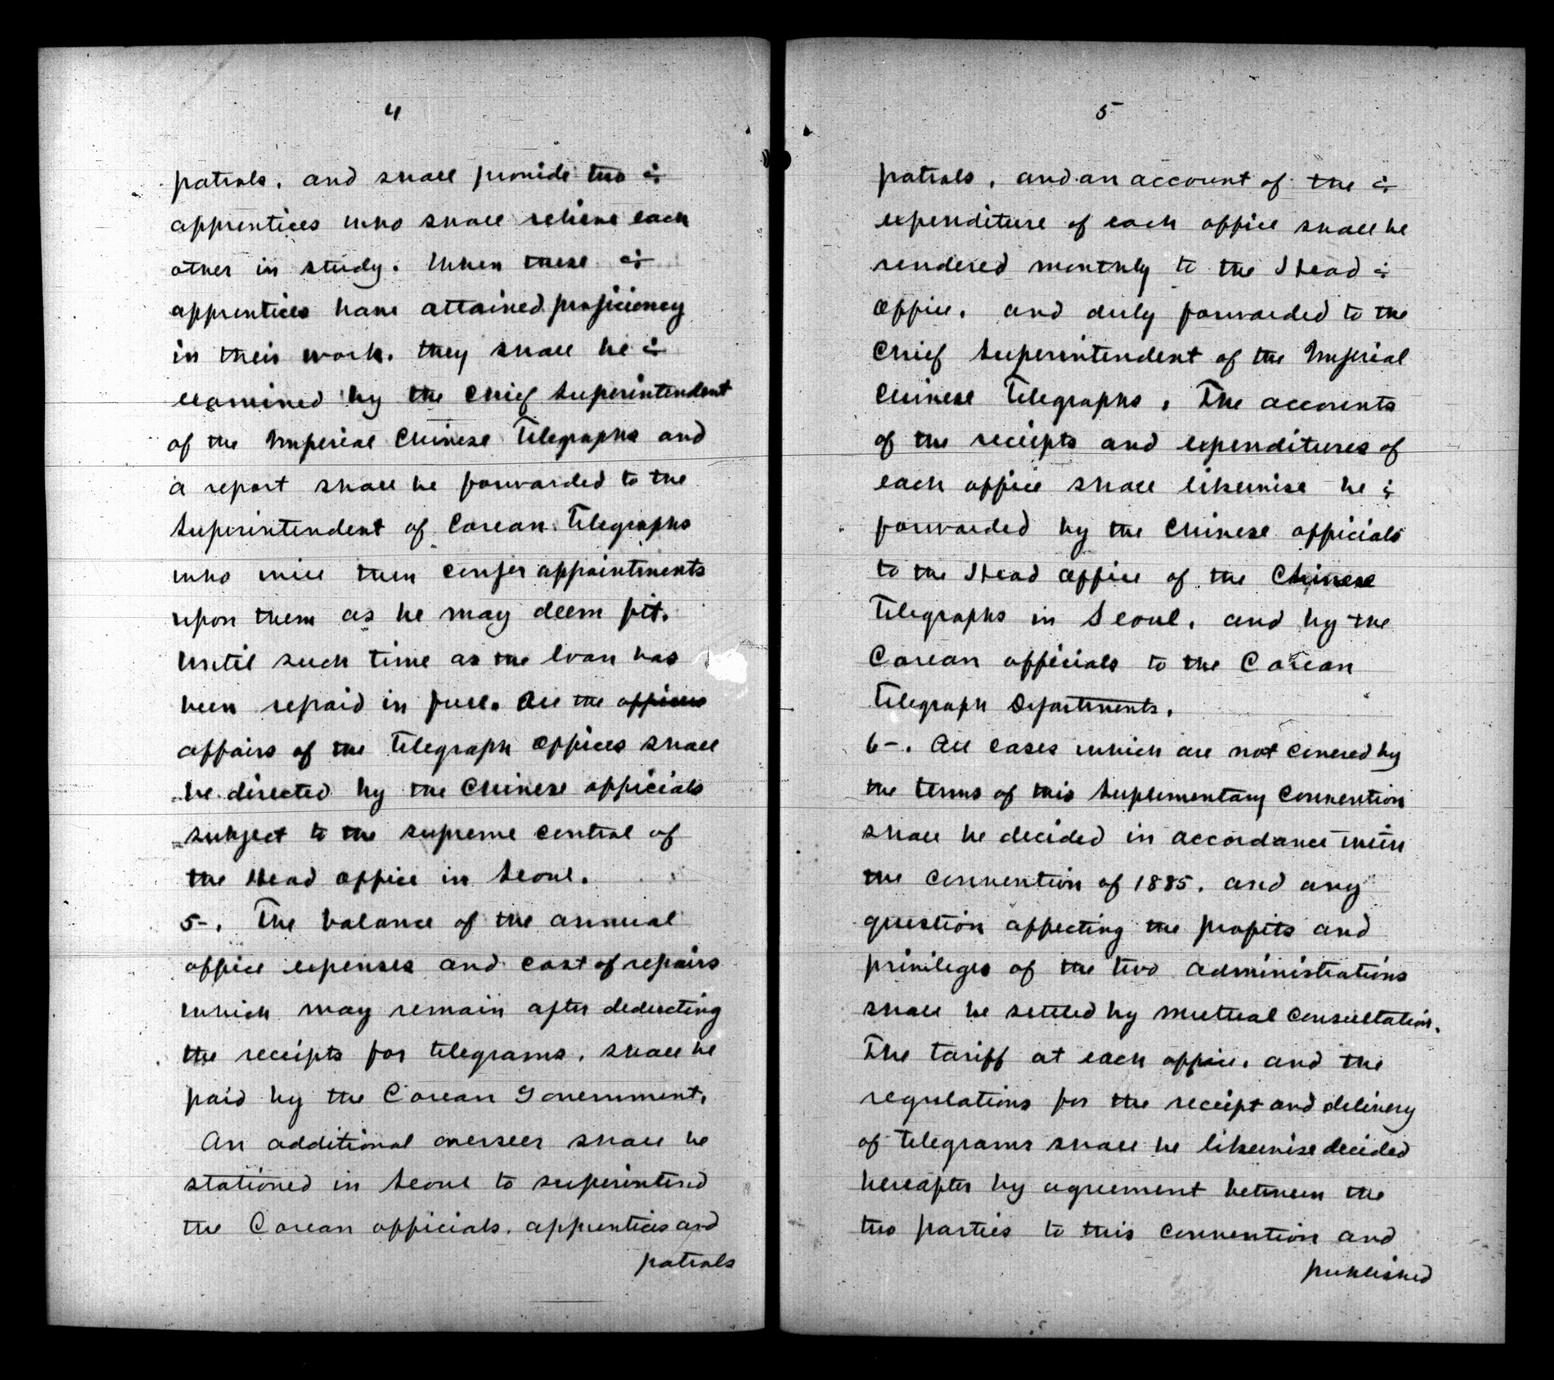 4
patrols, and shall provide two ÷
apprentices who shall relieve each
other in study. When these ÷
apprentices have attained proficiency
in their work, they shall be ÷
examined by the Chief Superintendent
of the Imperial Chinese Telegraphs and
a report shall be forwarded to the
Superintendent of Corean Telegraphs
who will then confer appointments
upon them as he may deem fit.
Until such time as the loan has
been repaid in full. All the offices
affairs of the Telegraph Offices shall
be directed by the Chinese officials
subject to the supreme control of
the Head Office in Seoul.
5-. The balance of the annual
office expenses and cost of repairs
which may remain after deducting
the receipts for telegrams, shall be
paid by the Corean Government.
An additional overseer shall be
stationed in Seoul to superintend
the Corean officials, apprentices and
patrols
5
patrols, and an account of the ÷
expenditure of each office shall be
rendered monthly to the Head ÷
Office, and duly forwarded to the
Chief Superintendent of the Imperial
Chinese Telegraphs. The accounts
of the receipts and expenditures of
each office shall likewise be ÷
forwarded by the Chinese officials
to the Head Office of the Chinese
Telegraphs in Seoul, and by the
Corean officials to the Corean
Telegraph Departments.
6-. All cases which are not covered by
the terms of this Suplementary Convention
shall be decided in accordance with
the Convention of 1885, and any
question affecting the profits and
privileges of the two administrations
shall be settled by mutual consultation.
The tariff at each office, and the
regulations for the receipt and delivery
of telegrams shall be likewise decided
hereafter by agreement between the
two parties to this Convention and
published